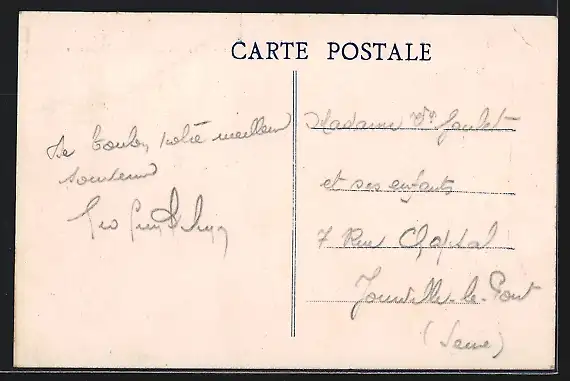 CARTE POSTALE
De Toulon, notre meilleur
souvenir
Madame Vve
et ses enfants
7 Rue Chapsal
Joinville-le-Pont
(Seine)